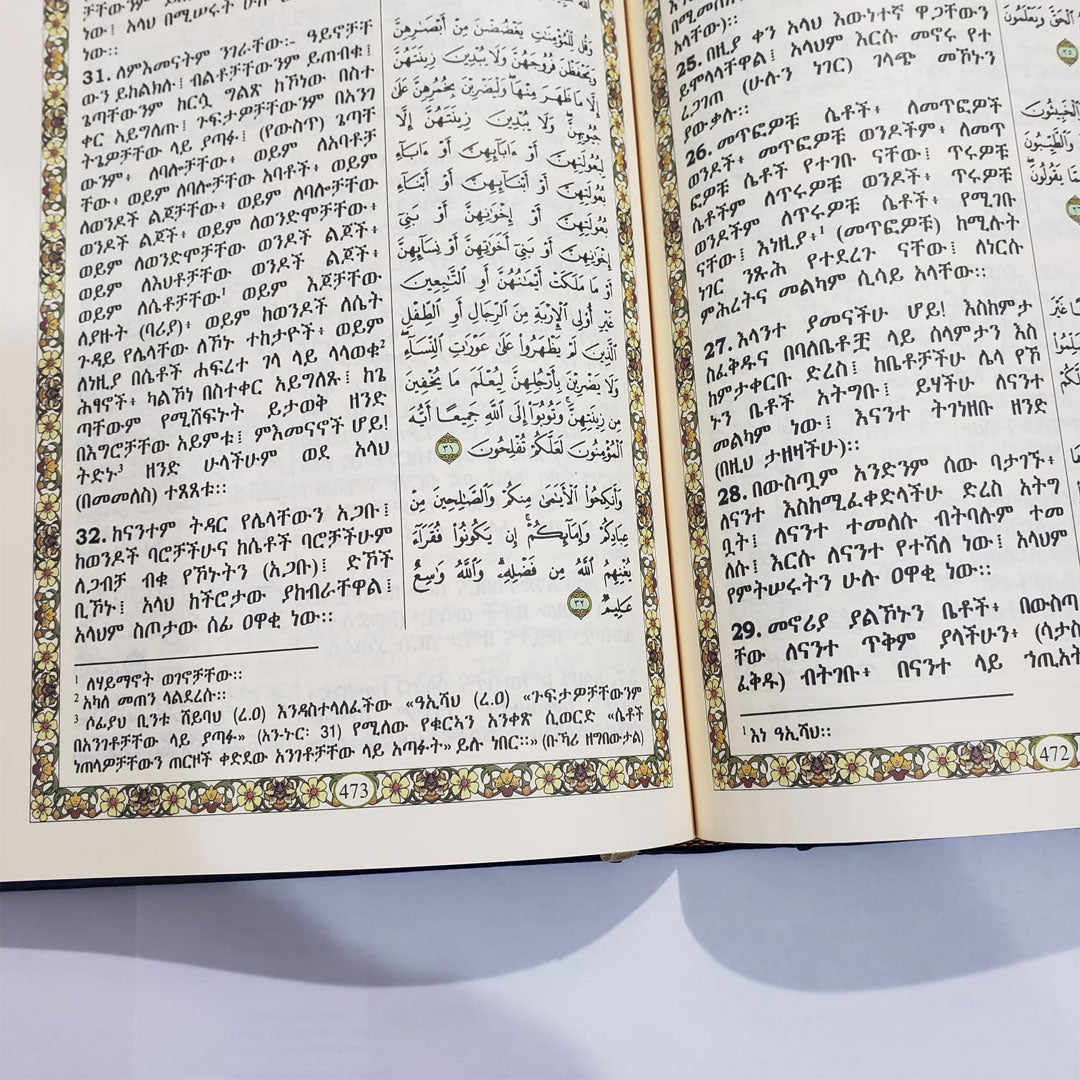 25. በዚያ ቀን አላህ እውነተኛ ዋጋቸውን
ይሞላላቸዋል፤ አላህም እርሱ መኖሩ የተ
ረጋገጠ (ሁሉን ነገር) ገላጭ መኾኑን
ያውቃሉ፡፡
26. መጥፎዎቹ ሴቶች፥ ለመጥፎዎች
ወንዶች፥ መጥፎዎቹ ወንዶችም፥ ለመጥ
ፎዎቹ ሴቶች የተገቡ ናቸው፤ ጥሩዎቹ
ሴቶችም ለጥሩዎቹ ወንዶች፥ ጥሩዎቹ
ወንዶችም ለጥሩዎቹ ሴቶች፥ የሚገቡ
ናቸው፤ እነዚያ፥¹ (መጥፎዎቹ) ከሚሉት
ነገር ንጹሕ የተደረጉ ናቸው፤ ለነርሱ
ምሕረትና መልካም ሲሳይ አላቸው፡፡
27. እላንተ ያመናችሁ ሆይ! እስከምታ
ስፈቅዱና በባለቤቶቿ ላይ ሰላምታን እስ
ከምታቀርቡ ድረስ፤ ከቤቶቻችሁ ሌላ የኾ
ኑን ቤቶች አትግቡ፤ ይሃችሁ ለናንተ
መልካም ነው፤ እናንተ ትገነዘቡ ዘንድ
(በዚህ ታዘዛችሁ)፡፡
28. በውስጧም አንድንም ሰው ባታገኙ፥
ለናንተ እስከሚፈቀድላችሁ ድረስ አትግ
ቧት፤ ለናንተ ተመለሱ ብትባሉም ተመ
ለሱ፤ እርሱ ለናንተ የተሻለ ነው፤ አላህም
የምትሠሩትን ሁሉ ዐዋቂ ነው፡፡
29. መኖሪያ ያልኾኑን ቤቶች፥ በውስጣ
ቸው ለናንተ ጥቅም ያላችሁን፥ (ሳታስ
ፈቅዱ) ብትገቡ፥ በናንተ ላይ ኀጢአት
¹ እነ ዓኢሻህ፡፡
472
ነው፤ አላህ በሚሠሩት ሁሉ
ነው፡፡
31. ለምእመናትም ንገራቸው፡- ዓይኖቻቸ
ውን ይከልክሉ፤ ብልቶቻቸውንም ይጠብቁ፤
ጌጣቸውንም ከርሷ ግልጽ ከኾነው በስተ
ቀር አይግለጡ፤ ጉፍታዎቻቸውንም በአንገ
ትጌዎቻቸው ላይ ያጣፉ፤ (የውስጥ) ጌጣቸ
ውንም፥ ለባሎቻቸው፥ ወይም ለአባቶቻ
ቸው፥ ወይም ለባሎቻቸው አባቶች፥ ወይም
ለወንዶች ልጆቻቸው፥ ወይም ለባሎቻቸው
ወንዶች ልጆች፥ ወይም ለወንድሞቻቸው፥
ወይም ለወንድሞቻቸው ወንዶች ልጆች፥
ወይም ለእህቶቻቸው ወንዶች ልጆች፥
ወይም ለሴቶቻቸው¹ ወይም እጆቻቸው
ለያዙት (ባሪያ)፥ ወይም ከወንዶች ለሴት
ጉዳይ የሌላቸው ለኾኑ ተከታዮች፥ ወይም
ለነዚያ በሴቶች ሐፍረተ ገላ ላይ ላላወቁ²
ሕፃኖች፥ ካልኾነ በስተቀር አይግለጹ፤ ከጌ
ጣቸውም የሚሸፍኑት ይታወቅ ዘንድ
በእግሮቻቸው አይምቱ፤ ምእመናኖች ሆይ!
ትድኑ³ ዘንድ ሁላችሁም ወደ አላህ
(በመመለስ) ተጸጸቱ፡፡
32. ከናንተም ትዳር የሌላቸውን አጋቡ፤
ከወንዶች ባሮቻችሁና ከሴቶች ባሮቻችሁም
ለጋብቻ ብቁ የኾኑትን (አጋቡ)፤ ድኾች
ቢኾኑ፤ አላህ ከችሮታው ያከብራቸዋል፤
አላህም ስጦታው ሰፊ ዐዋቂ ነው፡፡
وَقُل لِّلْمُؤْمِنَٰتِ يَغْضُضْنَ مِنْ أَبْصَٰرِهِنَّ
وَيَحْفَظْنَ فُرُوجَهُنَّ وَلَا يُبْدِينَ زِينَتَهُنَّ
إِلَّا مَا ظَهَرَ مِنْهَا ۖ وَلْيَضْرِبْنَ بِخُمُرِهِنَّ عَلَىٰ
جُيُوبِهِنَّ ۖ وَلَا يُبْدِينَ زِينَتَهُنَّ إِلَّا
لِبُعُولَتِهِنَّ أَوْ ءَابَآئِهِنَّ أَوْ ءَابَآءِ
بُعُولَتِهِنَّ أَوْ أَبْنَآئِهِنَّ أَوْ أَبْنَآءِ
بُعُولَتِهِنَّ أَوْ إِخْوَٰنِهِنَّ أَوْ بَنِىٓ
إِخْوَٰنِهِنَّ أَوْ بَنِىٓ أَخَوَٰتِهِنَّ أَوْ نِسَآئِهِنَّ
أَوْ مَا مَلَكَتْ أَيْمَٰنُهُنَّ أَوِ ٱلتَّٰبِعِينَ
غَيْرِ أُو۟لِى ٱلْإِرْبَةِ مِنَ ٱلرِّجَالِ أَوِ ٱلطِّفْلِ
ٱلَّذِينَ لَمْ يَظْهَرُوا۟ عَلَىٰ عَوْرَٰتِ ٱلنِّسَآءِ ۖ
وَلَا يَضْرِبْنَ بِأَرْجُلِهِنَّ لِيُعْلَمَ مَا يُخْفِينَ
مِن زِينَتِهِنَّ ۚ وَتُوبُوٓا۟ إِلَى ٱللَّهِ جَمِيعًا أَيُّهَ
ٱلْمُؤْمِنُونَ لَعَلَّكُمْ تُفْلِحُونَ ٣١
وَأَنكِحُوا۟ ٱلْأَيَٰمَىٰ مِنكُمْ وَٱلصَّٰلِحِينَ مِنْ
عِبَادِكُمْ وَإِمَآئِكُمْ ۚ إِن يَكُونُوا۟ فُقَرَآءَ
يُغْنِهِمُ ٱللَّهُ مِن فَضْلِهِۦ ۗ وَٱللَّهُ وَٰسِعٌ
عَلِيمٌ ٣٢
¹ ለሃይማኖት ወገኖቻቸው፡፡
² አካለ መጠን ላልደረሱ፡፡
³ ሶፊያህ ቢንቱ ሸይባህ (ረ.ዐ) እንዳስተላለፈችው «ዓኢሻህ (ረ.ዐ) «ጉፍታዎቻቸውንም
በአንገቶቻቸው ላይ ያጣፉ» (አን-ኑር: 31) የሚለው የቁርኣን አንቀጽ ሲወርድ «ሴቶች
ነጠላዎቻቸውን ጠርዞች ቀድደው አንገቶቻቸው ላይ አጣፉት» ይሉ ነበር፡፡» (ቡኻሪ ዘግበውታል)
473